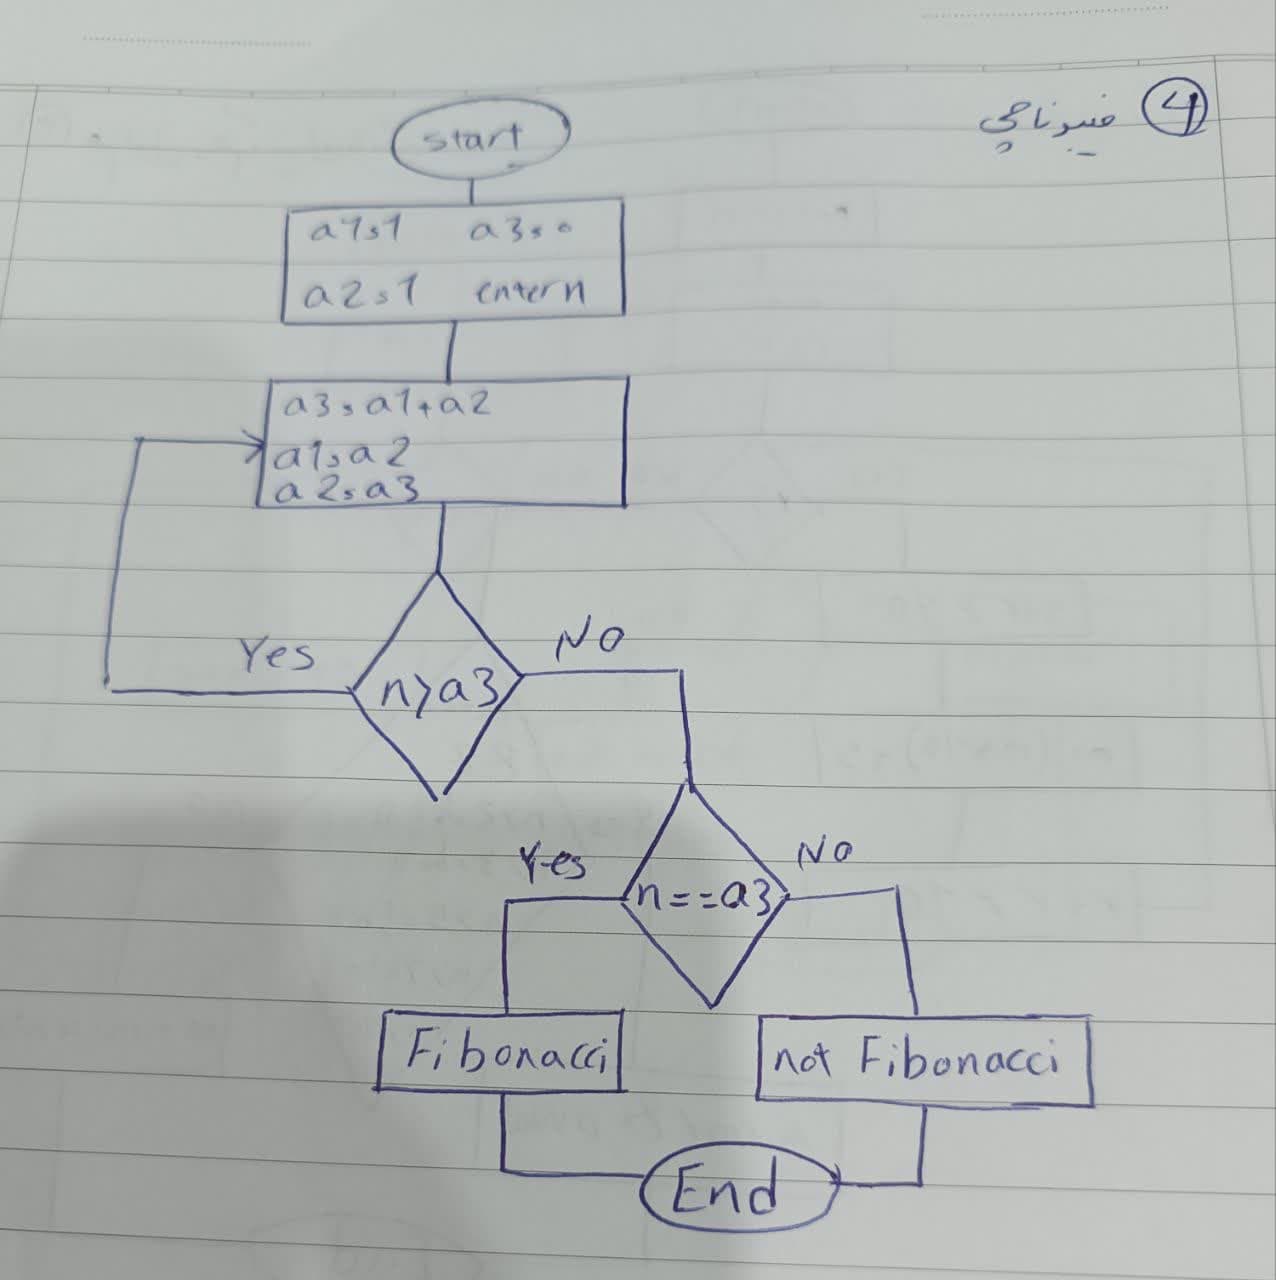 ④ فیبوناچی
start
a1=1 a3=0
a2=1 enter n
a3=a1+a2
a1=a2
a2=a3
n>a3
Yes
NO
n==a3
Yes
NO
Fibonacci
not Fibonacci
End